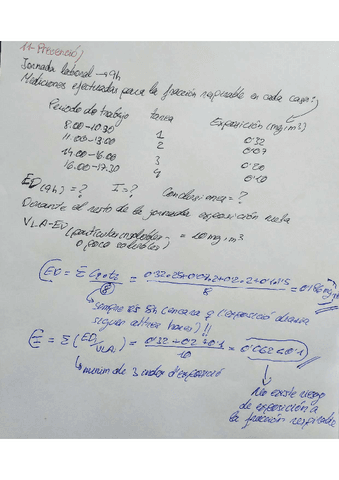 11- Presenció)
Jornada laboral → 9h
Mediciones efectuadas para la fracción respirable en cada caso:
Período de trabajo tarea Exposición (mg/m³)
8:00-10:30 1 0'32
11:00-13:00 2 0'07
14:00-16:00 3 0'20
16:00-17:30 4 0'10
ED(9h) = ? I = ? Conclusiones = ?
Durante el resto de la jornada exposición nula
VLA-ED (particulas insolubles = 10 mg/m³
o poco solubles)
ED = Σ
= 0'32·2'5+0'07·2+0'2·2+0'1·1'5
8
8
sempre és 8h encara q l'exposició diaria
siguin altres hores)!!
= Σ (ED/VLA) = 0'32+0'2+0'1 = 0'062<0'1
10
mínim de 3 index d'exposició
No existe riesgo
de exposición a
la fracción respirable